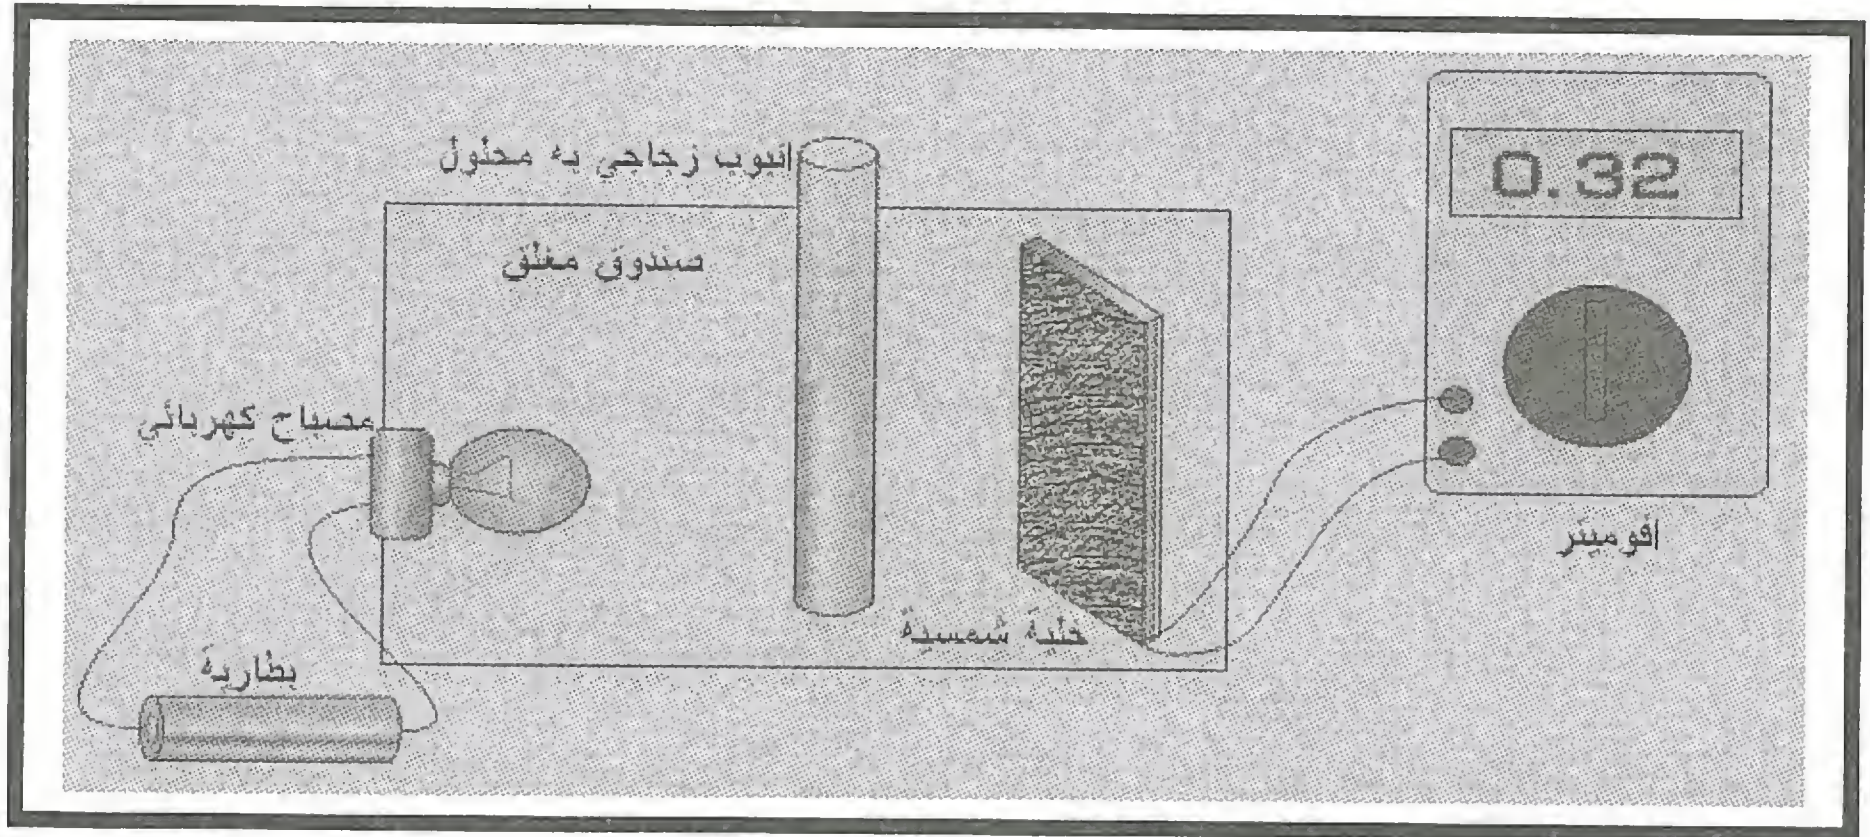 انبوب زجاجي به محلول
0.32
صندوق مغلق
مصباح كهربائي
افوميتر
خلية شمسية
بطارية